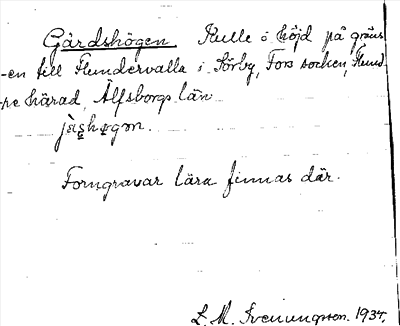 Gärdshögen Kulle o höjd på gräns
-en till Flundervalla i Sörby, Fors socken, Flund-
re härad, Älfsborgs län.
Forngravar lära finnas där.
L. M. Svenungsson. 1935.